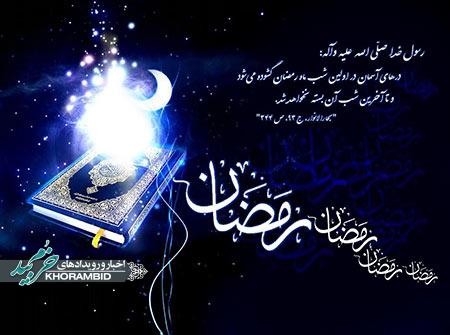 رسول خدا صلّی الله علیه وآله:
درهای آسمان در اولین شب ماه رمضان گشوده می‌شود
و تا آخرین شب آن بسته نخواهد شد.
"بحارالانوار، ج ۹۳، ص ۳۴۴"
رمضان
رمضان
رمضان
رمضان
اخبار و رویدادهای
خرمبید
KHORAMBID